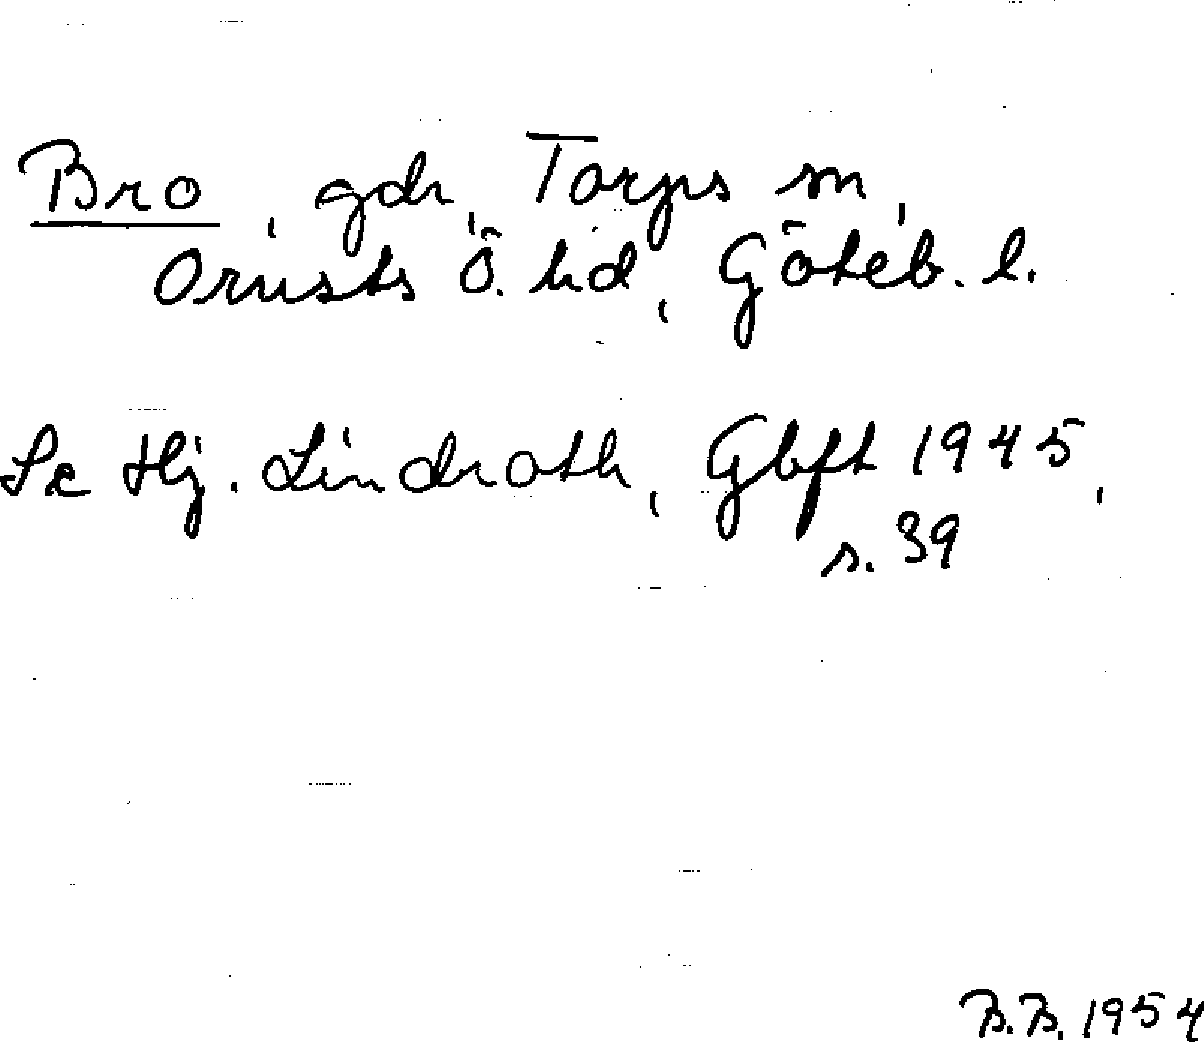 Bro, gdr, Torps sn,
Orusts Ö. hd, Göteb. l.
Se Hj. Lindroth, Gbft 1945,
s. 39
B.B. 1954